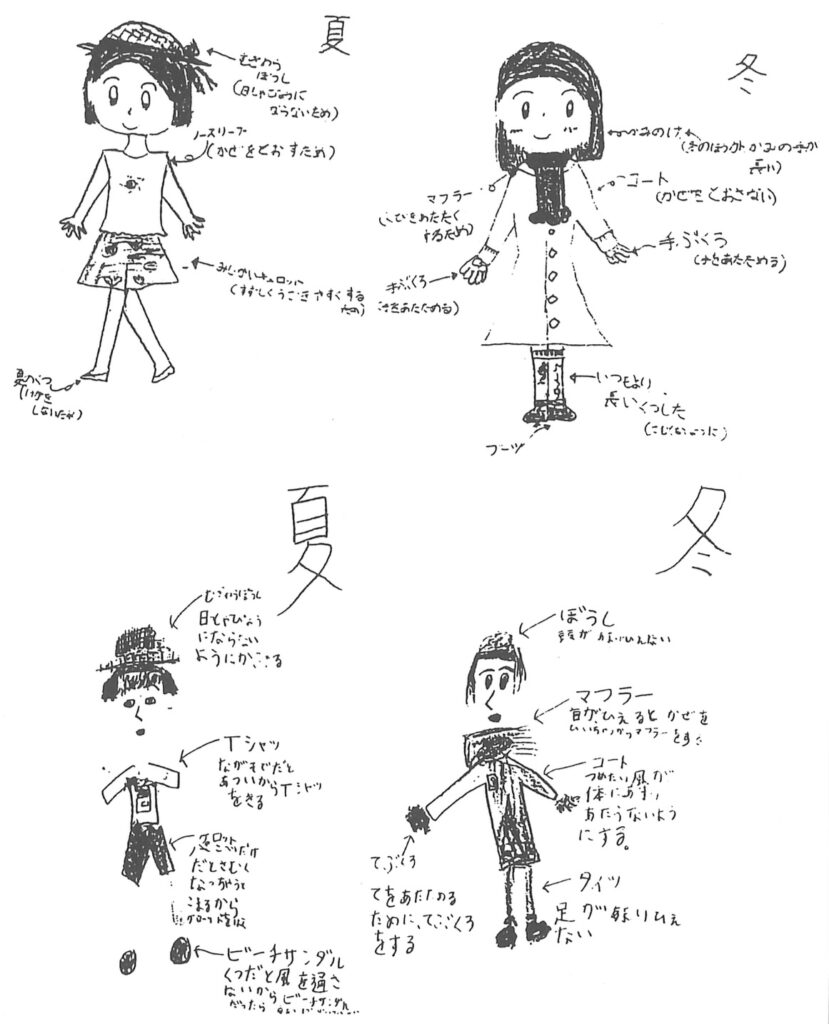 夏
むぎわら
ぼうし
(日しゃびょうに
ならないため)
ノースリーブ
(かぜをとおすため)
みじかいキュロット
(すずしくうごきやすくする
ため)
夏のくつ
(けがを
しないため)
冬
かみのけ
(冬のほうがかみの毛が
長い)
マフラー
(くびをあたたく
するため)
コート
(かぜをとおさない)
手ぶくろ
(手をあたためる)
手ぶくろ
(手をあたためる)
いつもより
長いくつした
ブーツ
夏
むぎわらぼうし
日しゃびょう
にならない
ようにかぶる
Tシャツ
ながそでだと
あついからTシャツ
をきる
だとさむく
なっちゃうと
こまるから
ビーチサンダル
くつだと風を通さ
ないからビーチサンダル
だったら
冬
ぼうし
頭が
マフラー
首がひえるとかぜを
マフラーをする
コート
つめたい風が
体にあまり
あたらないよう
にする。
てぶくろ
てをあたためる
ために、てぶくろ
をする
タイツ
足があまりひえ
ない